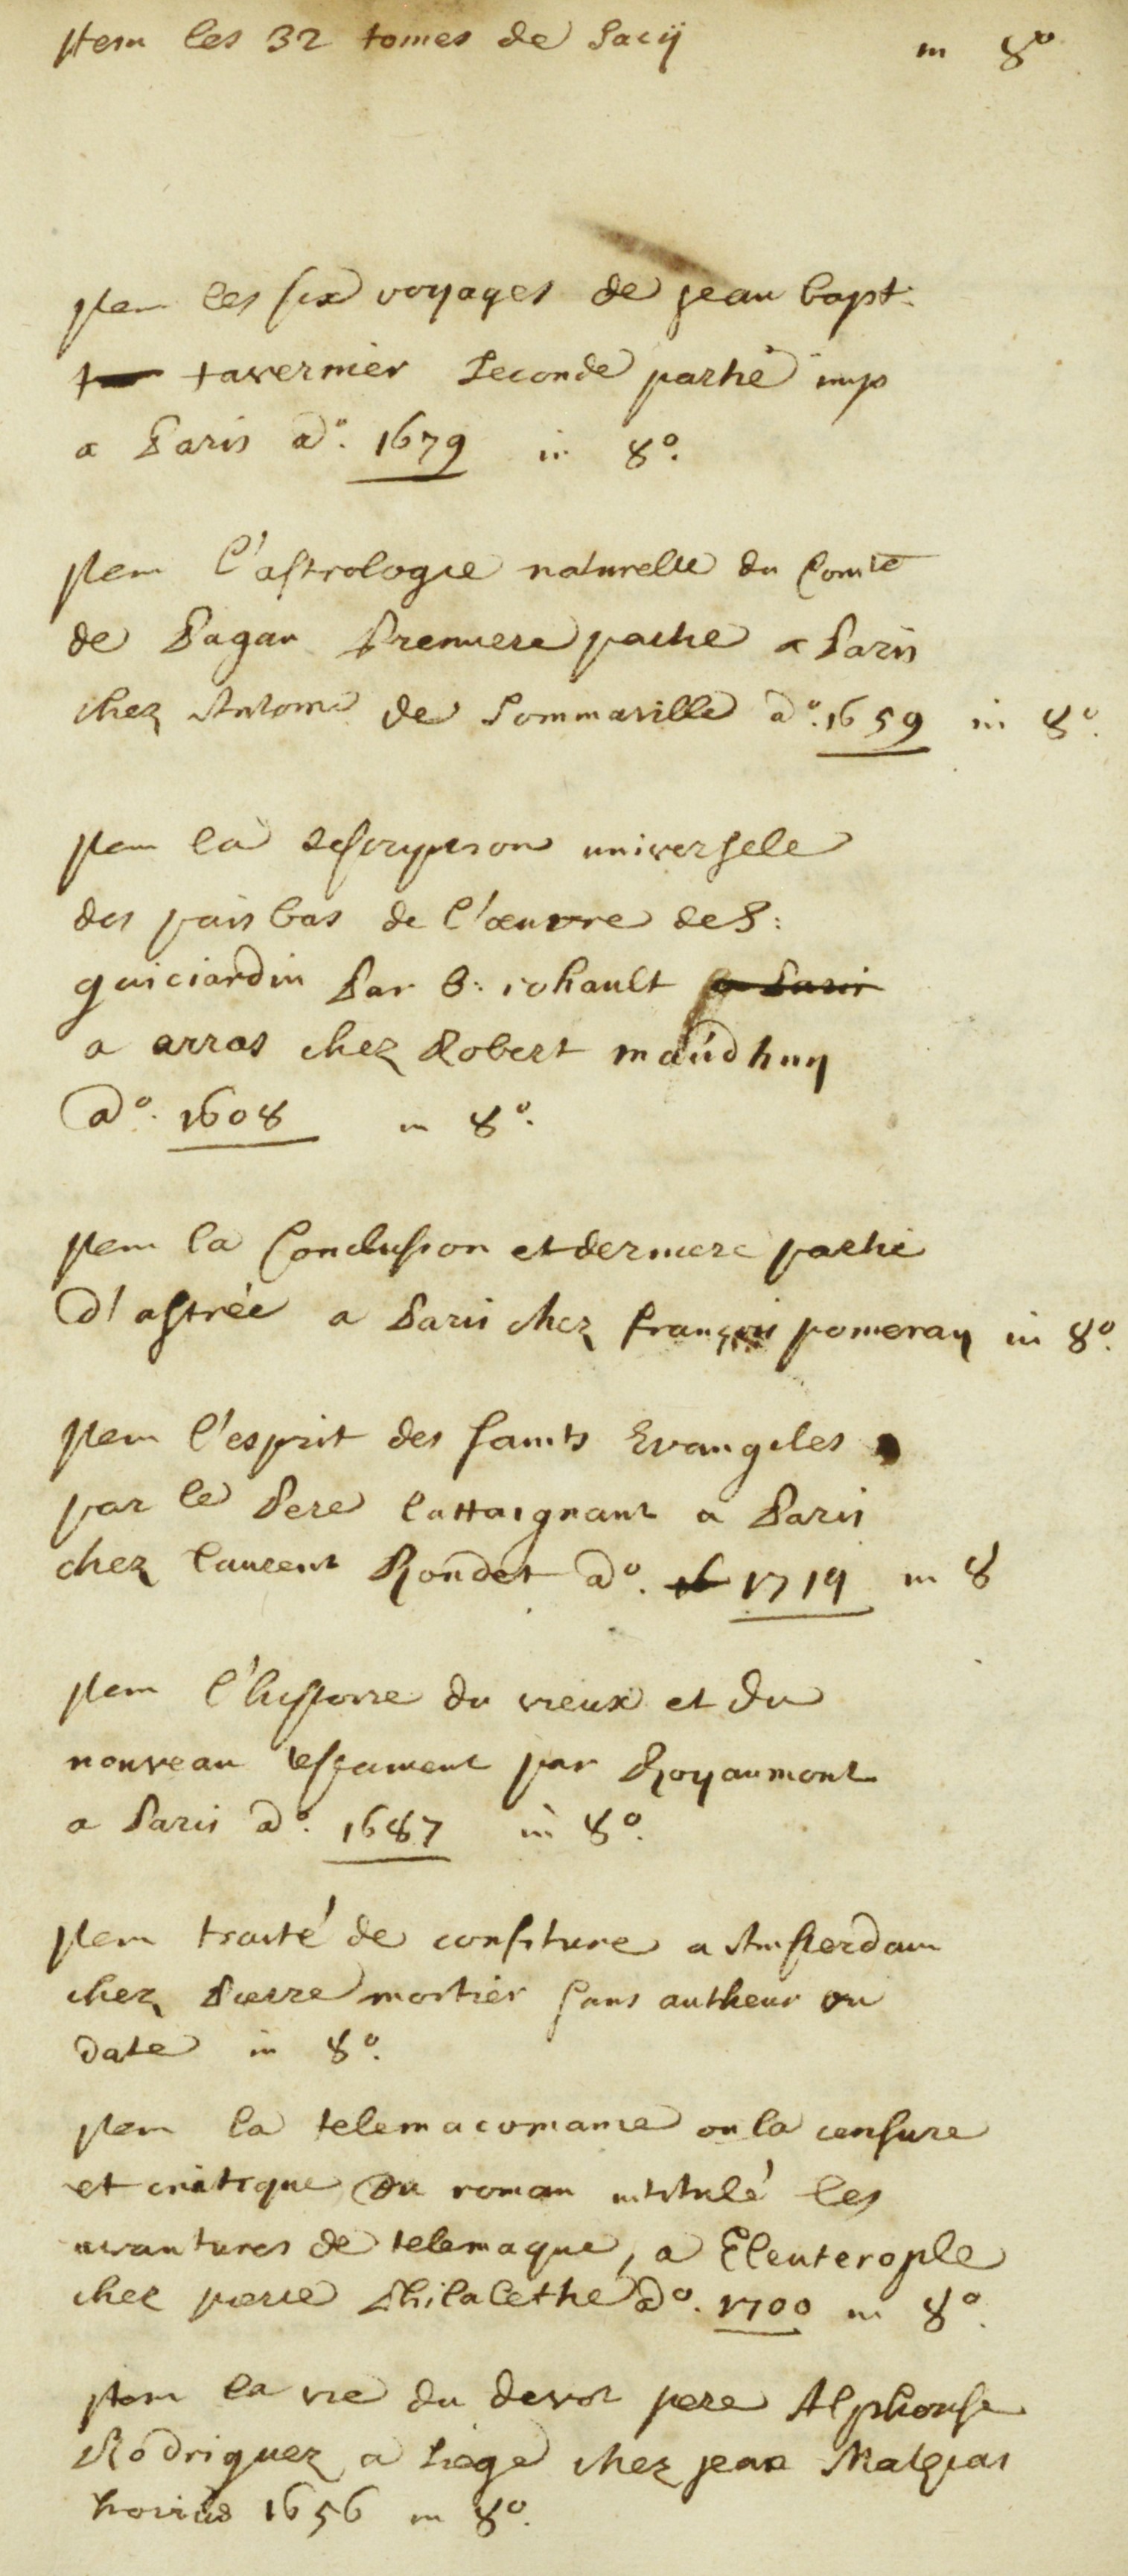 Item les 32 tomes de Sacÿ in 8º
Item les six voyages de jean bapt:
tavernier seconde partie imp
a Paris aº. 1679 in 8º.
Item l'astrologie naturelle du Comte
de Pagan Premiere partie a Paris
chez Antoine de Sommaville aº. 1659 in 8º.
Item la descrypsion universele
des païs bas de l'œuvre de S:
guiciardin Par B: rohault a Paris
a arras chez Robert maúdhuy
aº. 1608 in 8º.
Item la Conclusion et derniere partie
d'astrée a Paris chez françois pomeray in 8º.
Item l'esprit des saints Evangiles
par le Pere lattaignant a Paris
chez laurent Rondet aº. 16 1719 in 8
Item l'histoire du vieux et du
nouveau testament par Royaumont
a Paris aº. 1687 in 8º.
Item traité de confiture a Amsterdam
chez Pierre mortier sans autheur ou
date in 8º.
Item la telemacomanie ou la censure
et critique du roman intitulé les
avantures de telemaque, a Eleuterople
chez pierre Philalethe aº. 1700 in 8º.
Item la vie du devot pere Alphonse
Rodriguez a Liege chez jean Mathias
hovius 1656 in 8º.